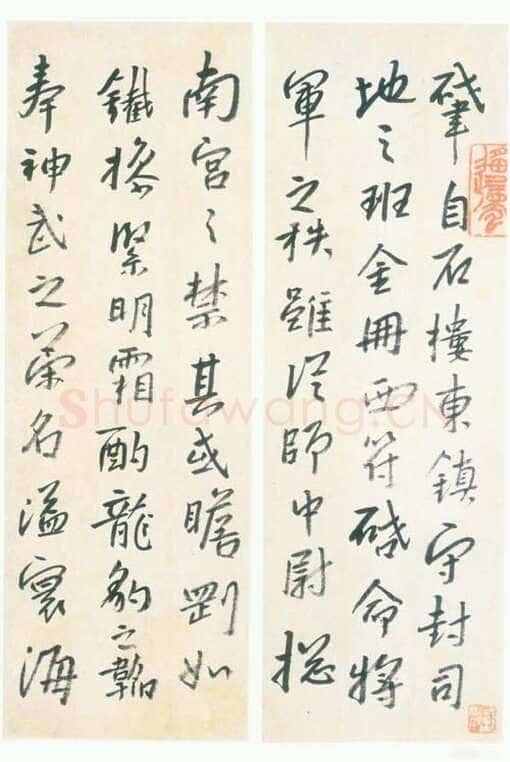 肇自石樓東鎮守封司
地之班金冊西符啟命將
軍之秩雖從師中尉摠
南宮之禁其或瞻剛如
鐵操緊明霜酌龍豹之韜
奉神武之榮名溢寰海
Shufawang.CN